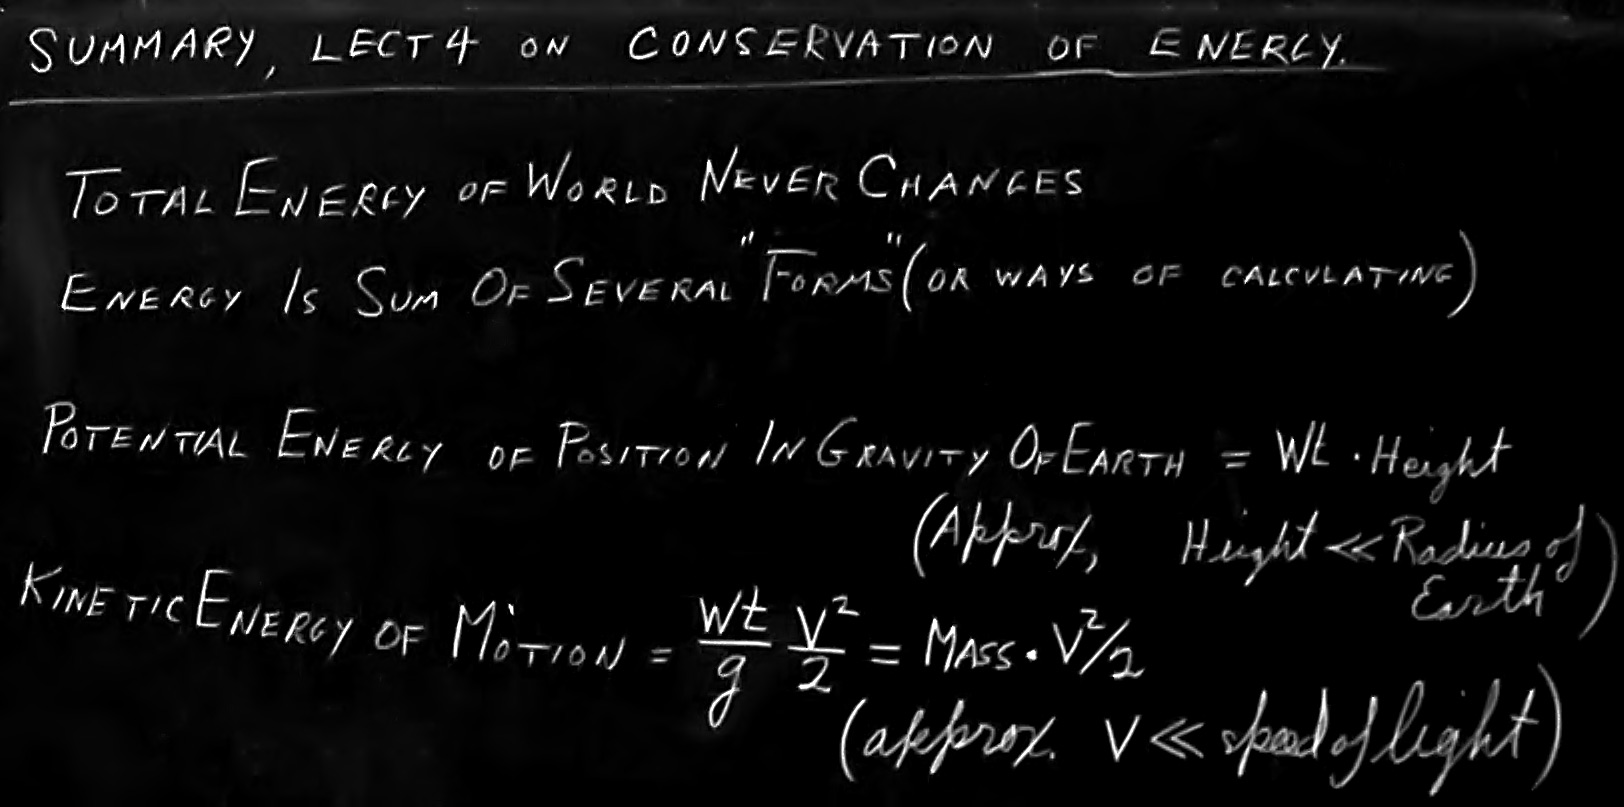 SUMMARY, LECT 4 ON CONSERVATION OF ENERGY.
TOTAL ENERGY OF WORLD NEVER CHANGES
ENERGY IS SUM OF SEVERAL "FORMS" (OR WAYS OF CALCULATING)
POTENTIAL ENERGY OF POSITION IN GRAVITY OF EARTH = Wt · Height
(Approx, Height << Radius of Earth)
KINETIC ENERGY OF MOTION = Wt/g V²/2 = MASS · V²/2
(approx. V << speed of light)